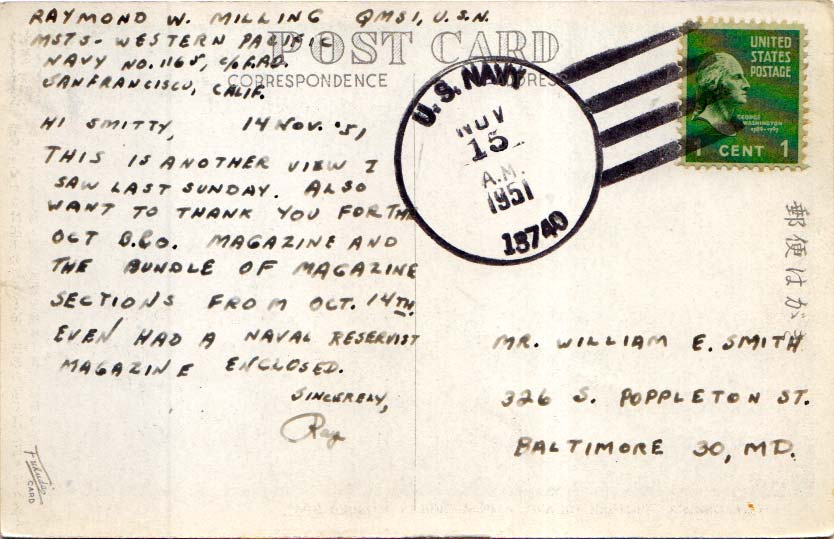 RAYMOND W. MILLING QMS1, U.S.N.
MSTS- WESTERN PACIFIC
NAVY NO. 1165, C/O F.P.O.
SAN FRANCISCO, CALIF.
POST CARD
CORRESPONDENCE
ADDRESS
HI SMITTY, 14 NOV. '51
THIS IS ANOTHER VIEW I
SAW LAST SUNDAY. ALSO
WANT TO THANK YOU FOR THE
OCT B.&O. MAGAZINE AND
THE BUNDLE OF MAGAZINE
SECTIONS FROM OCT. 14TH.
EVEN HAD A NAVAL RESERVIST
MAGAZINE ENCLOSED.
SINCERELY,
Ray
CARD
U.S. NAVY
NOV
15
A.M.
1951
13740
UNITED
STATES
POSTAGE
GEORGE
WASHINGTON
1789-1797
1 CENT 1
郵便はがき
MR. WILLIAM E. SMITH
326 S. POPPLETON ST.
BALTIMORE 30, MD.